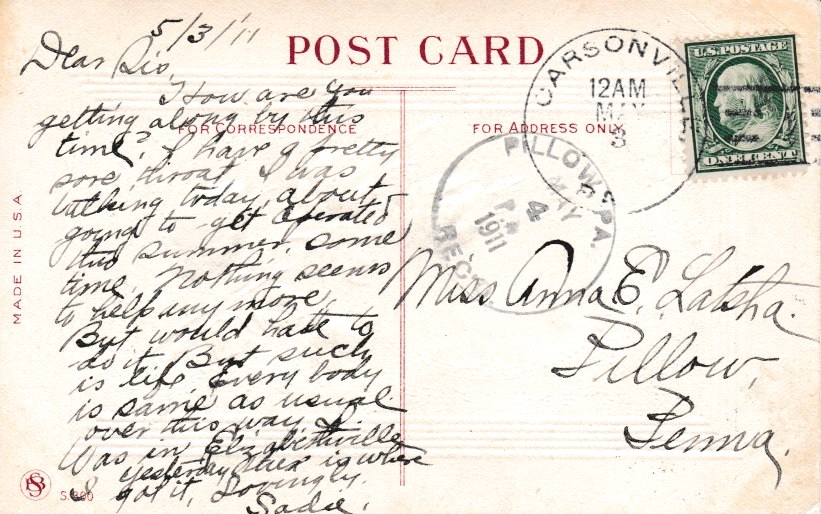 5/3/'11
POST CARD
Dear Sis,
How are you
getting along by this
time? I have a pretty
sore throat. I was
talking today about
going to get operated
this summer, some
time. Nothing seems
to help any more.
But would hate to
do it. But such
is life. Every body
is same as usual
over this way. I
Was in Elizabethville
yesterday that is where
I got it. Lovingly.
Sadie.
FOR CORRESPONDENCE
FOR ADDRESS ONLY
MADE IN U.S.A.
CARSONVILLE
12AM
MAY
3
PILLOW, PA.
MAY
4
1911
REC'D
U.S. POSTAGE
ONE CENT
Miss Anna E. Latsha.
Pillow,
Penna.